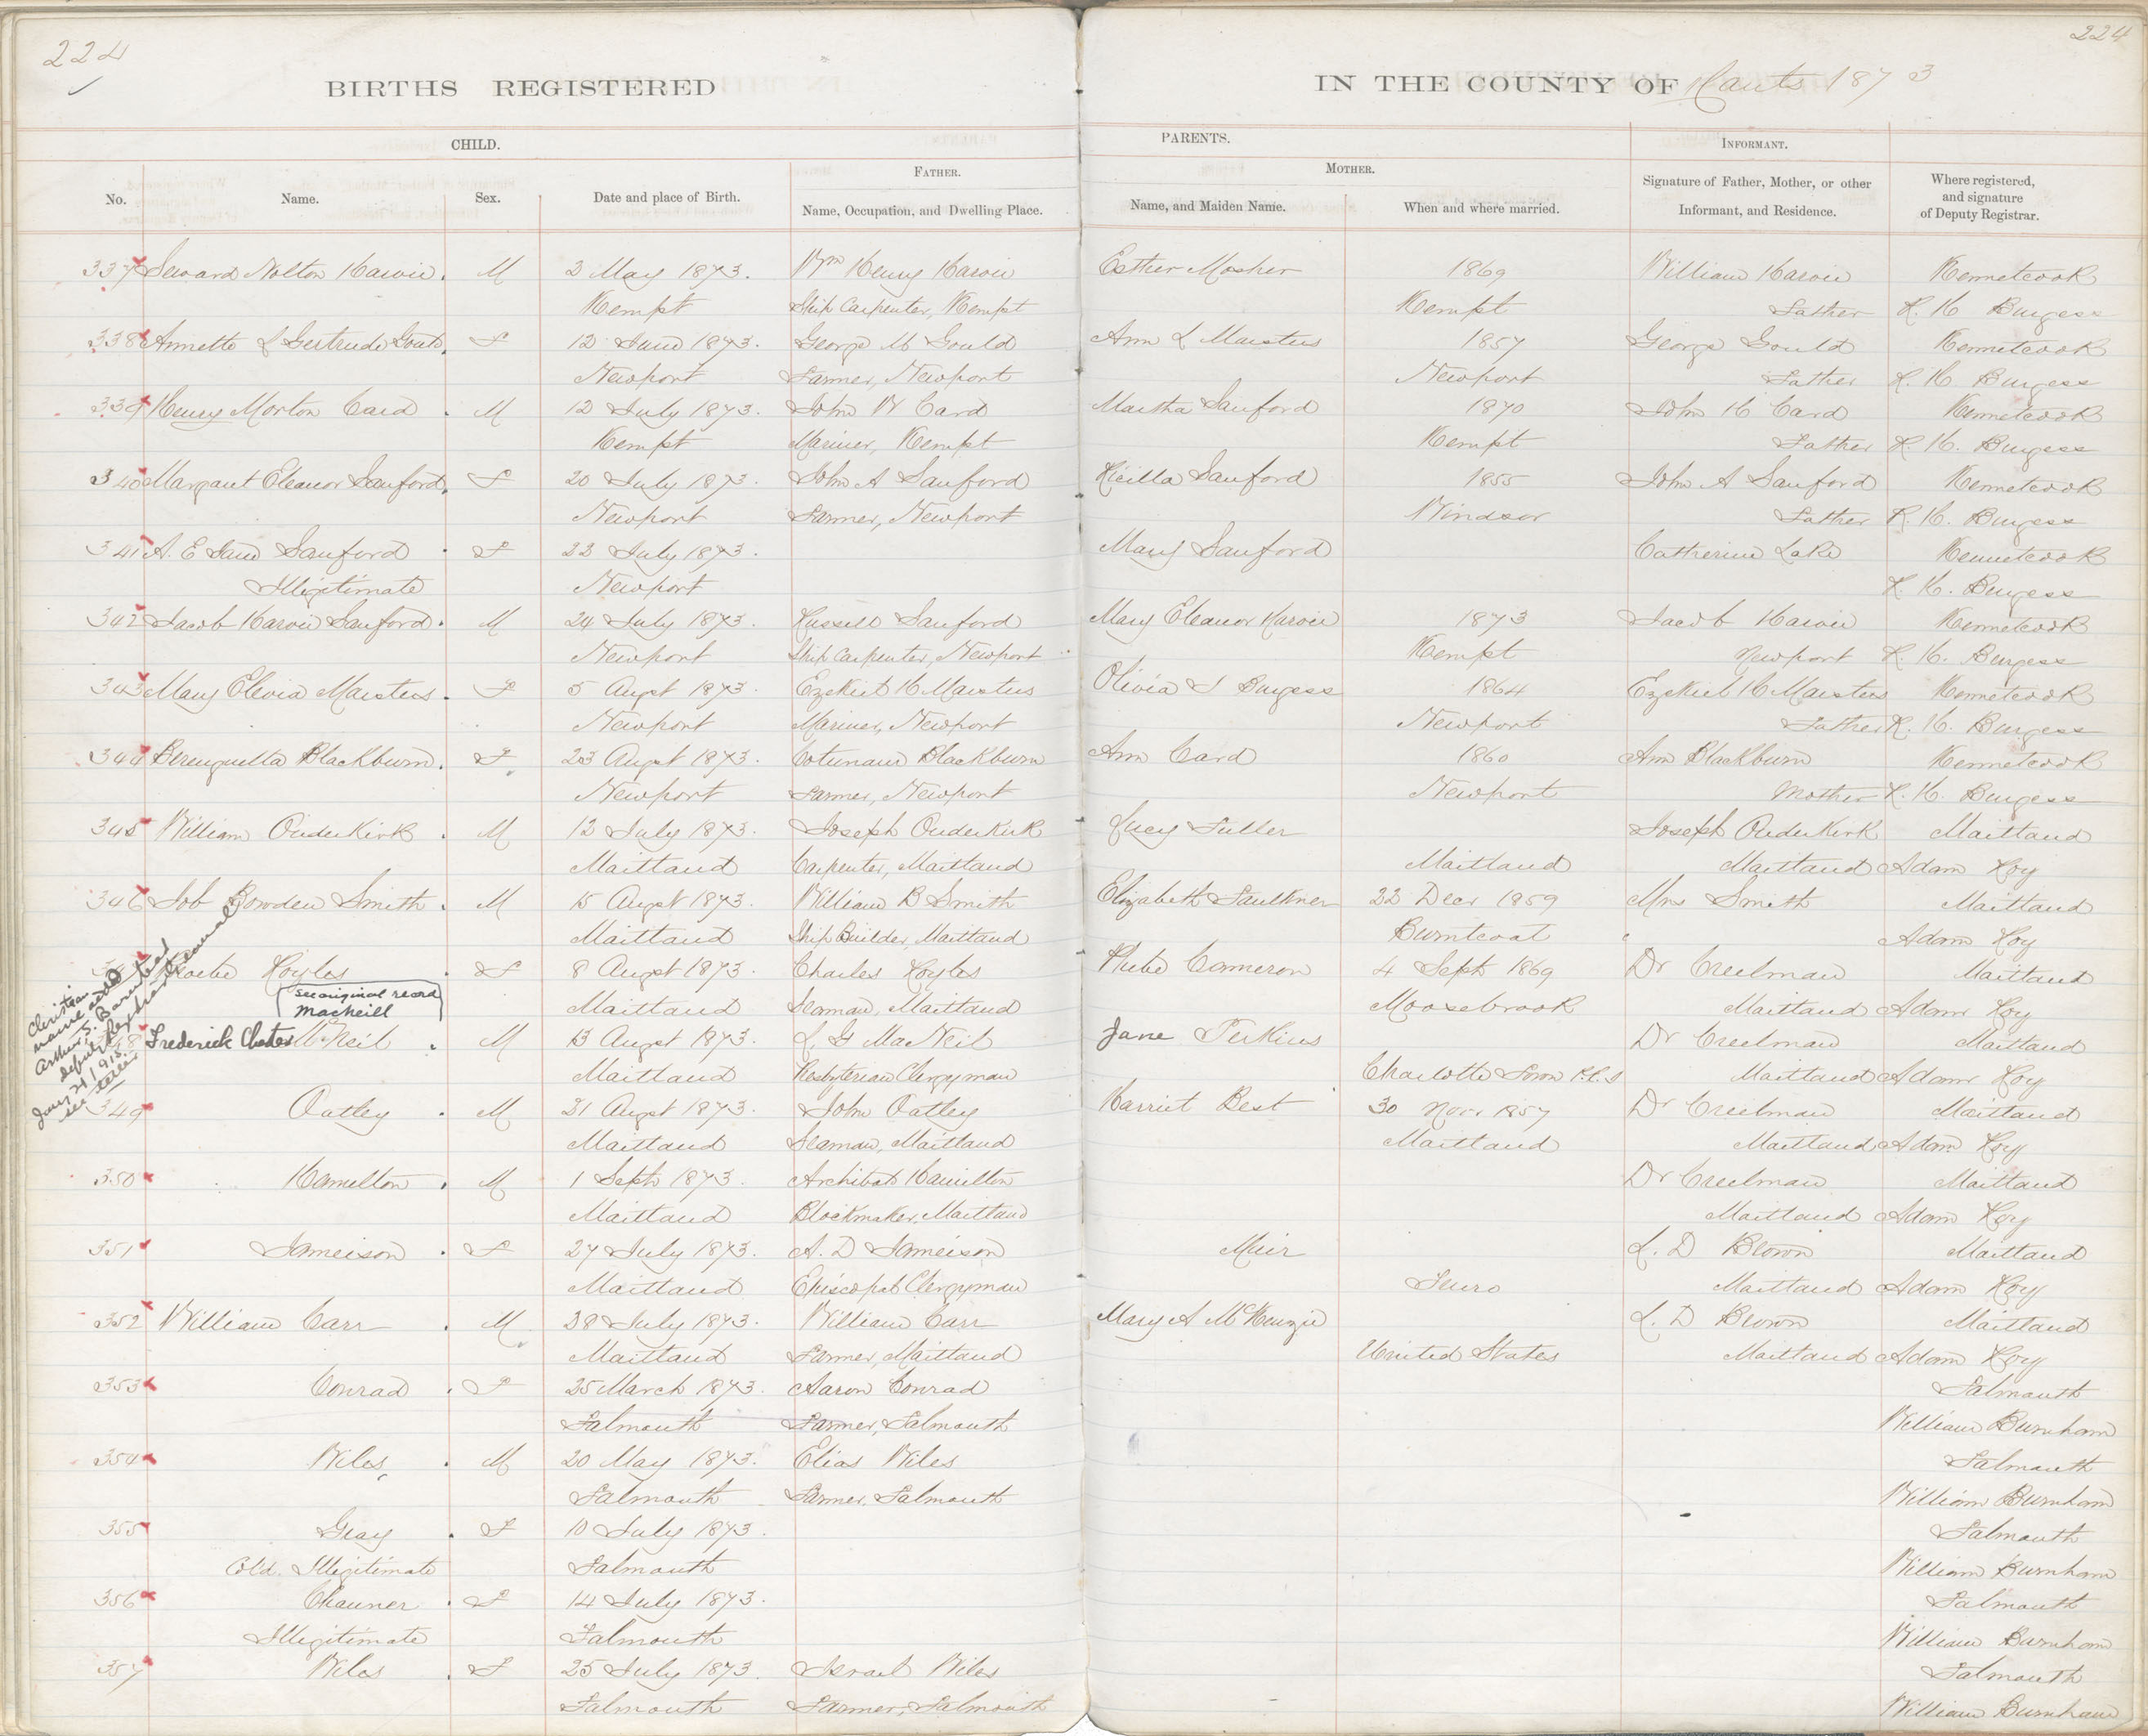 224
224
BIRTHS REGISTERED IN THE COUNTY OF Hants 1873
CHILD. PARENTS. INFORMANT.
FATHER. MOTHER.
No. Name. Sex. Date and place of Birth. Name, Occupation, and Dwelling Place. Name, and Maiden Name. When and where married. Signature of Father, Mother, or other Informant, and Residence. Where registered, and signature of Deputy Registrar.
337 Seward Nolton Harvie. M 2 May 1873. Wm Henry Harvie Esther Mosher 1869 William Harvie Kennetcook
Kempt Ship Carpenter, Kempt Kempt Father R. H. Burgess
338 Annette L Gertrude Gould. F 12 June 1873. George M Gould Ann L Marsters 1857 George Gould Kennetcook
Newport Farmer, Newport Newport Father R. H. Burgess
339 Henry Morton Card . M 12 July 1873. John W Card Martha Sanford 1870 John H Card Kennetcook
Kempt Mariner, Kempt Kempt Father R. H. Burgess
340 Margaret Eleanor Sanford. F 20 July 1873. John A Sanford Sanford 1855 John A Sanford Kennetcook
Newport Farmer, Newport Windsor Father R. H. Burgess
341 A. E Jane Sanford . F 22 July 1873. Mary Sanford Catherine Lake Kennetcook
Illigitimate Newport R. H. Burgess
342 Jacob Harvie Sanford. M 24 July 1873. Russell Sanford Mary Eleanor Harvie 1873 Jacob Harvie Kennetcook
Newport Ship Carpenter, Newport Kempt Newport R. H. Burgess
343 Mary Elevia Marsters. F 5 Augst 1873. Ezekiel H Marsters Olivia S Burgess 1864 Ezekiel H Marsters Kennetcook
Newport Mariner, Newport Newport Father R. H. Burgess
344 Berenguella Blackburn. F 23 Augst 1873. Blackburn Ann Card 1860 Ann Blackburn Kennetcook
Newport Farmer, Newport Newport Mother R. H. Burgess
345 William OuderKirk . M 12 July 1873. Joseph OuderKirk Lucy Fuller Joseph OuderKirk Maitland
Maitland Carpenter, Maitland Maitland Maitland Adam Roy
346 Job Bowden Smith. M 15 Augst 1873. William B Smith Elizabeth Faulkner 22 Decr 1859 Mrs Smith Maitland
Maitland Ship Builder, Maitland Burntcoat Adam Roy
Phoebe Hoyles . F 8 Augst 1873. Charles Hoyles Phebe Cameron 4 Sept 1869 Dr Creelman Maitland
see original record MacNeill Maitland Seaman, Maitland Moosebrook Maitland Adam Roy
Christian name added
Arthur S. Barnstead
Deputy Registrar General
Jany 21/1913.
see letter
8 Frederick Chester McNeil . M 13 Augst 1873. L. G MacNeil Jane Perkins Dr Creelman Maitland
Maitland Presbyterian Clergyman Charlotte Town P.E.I Maitland Adam Roy
349 Oatley . M 21 Augst 1873. John Oatley Harriet Best 30 Novr 1857 Dr Creelman Maitland
Maitland Seaman, Maitland Maitland Maitland Adam Roy
350 Hamilton . M 1 Sept 1873. Archibald Hamilton Dr Creelman Maitland
Maitland Blockmaker, Maitland Maitland Adam Roy
351 Jameison . F 27 July 1873. A. D Jameison Muir L. D Brown Maitland
Maitland Episcopal Clergyman Truro Maitland Adam Roy
352 William Carr . M 28 July 1873. William Carr Mary A McKenzie L. D Brown Maitland
Maitland Farmer, Maitland United States Maitland Adam Roy
353 Conrad . F 25 March 1873. Aaron Conrad Falmouth
Falmouth Farmer, Falmouth William Burnham
354 Wiles . M 20 May 1873. Elias Wiles Falmouth
Falmouth Farmer, Falmouth William Burnham
355 Gray . F 10 July 1873. Falmouth
Cold. Illigitimate Falmouth William Burnham
356 Chauner . F 14 July 1873. Falmouth
Illigitimate Falmouth William Burnham
357 Wiles . F 25 July 1873. Israel Wiles Falmouth
Falmouth Farmer, Falmouth William Burnham